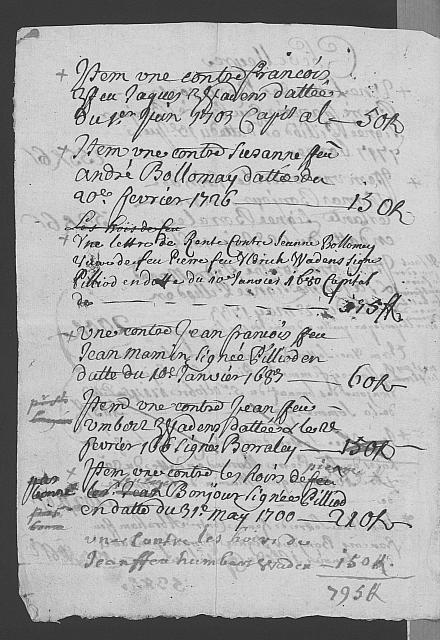 Item une contre francois
feu Jaques Wadens dattée
du 1er Juin 1703 Capital — 50 ff
Item une contre Susanne feu
andré Bollomay dattée du
20e fevrier 1726 — 150 ff
Les hoirs de feu
Une lettre de Rente contre Jeanne Bollomey
de feu Pierre feu Wadens signe
Pilliod en datte du 10e Janvier 1680 Capital
de — 375 ff
Une contre Jean francois feu
Jean Mamin signée Pillioden
datte du 10e Janvier 1687 — 60 ff
Item une contre Jean feu
umbert Wadens dattée
fevrier signée Borraley — 150 ff
Item une contre les hoirs de feu
Jean Bonjour signée Pilliod
en datte du 31e may 1700 — 210 ff
une Contre les hoirs de
Jean ffeu humbert Waden 150 ff
795 ff